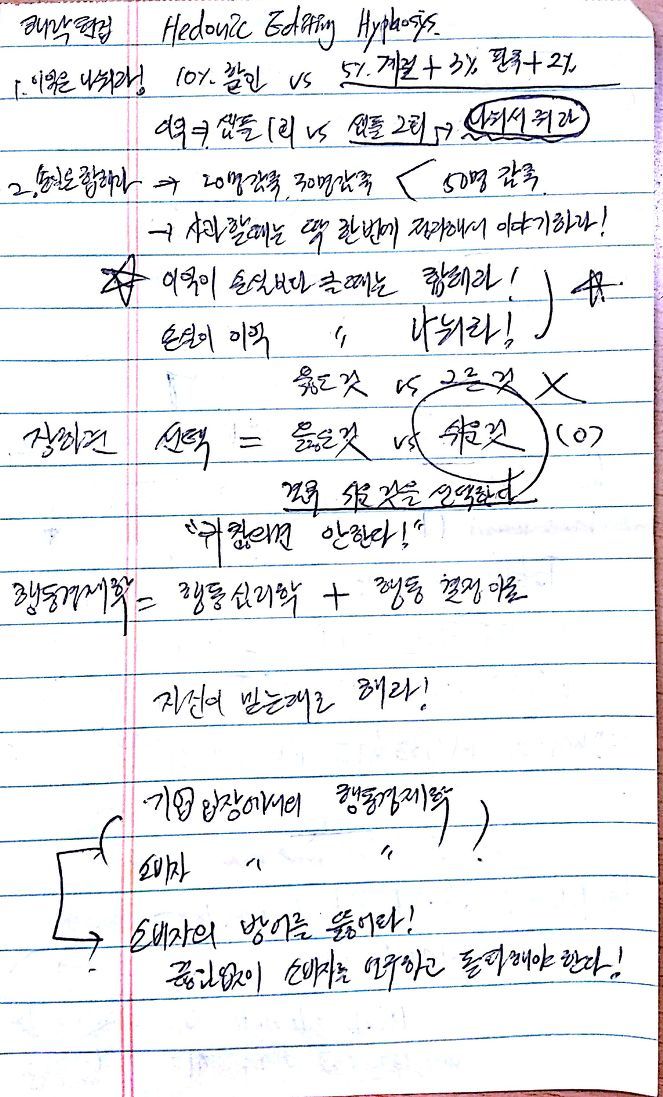 쾌락편집 Hedonic Editing Hyphosys.
1. 이익은 나눠라! 10% 할인 vs 5% 계절 + 3% 판촉 + 2%
이익 ⇒ 샘플 1회 vs 샘플 2회 → 나눠서 줘라
2. 손실은 합해라 → 20명감축, 30명감축 < 50명 감축
→ 사과할때는 딱 한번에 집과해서 이야기하라!
☆ 이익이 손실보다 클때는 합해라! ☆
손실이 이익 〃 나눠라!
옳은것 vs 그른것 X
선택 = 옳은것 vs 쉬운것 (O)
결국 쉬운 것을 선택한다
"귀찮으면 안한다!"
행동경제학 = 행동심리학 + 행동 결정이론
자신이 믿는대로 해라!
기업입장에서의 행동경제학
소비자 〃 〃 ?
소비자의 방어를 뚫어라!
? 끊임없이 소비자를 연구하고 돌파해야 한다!